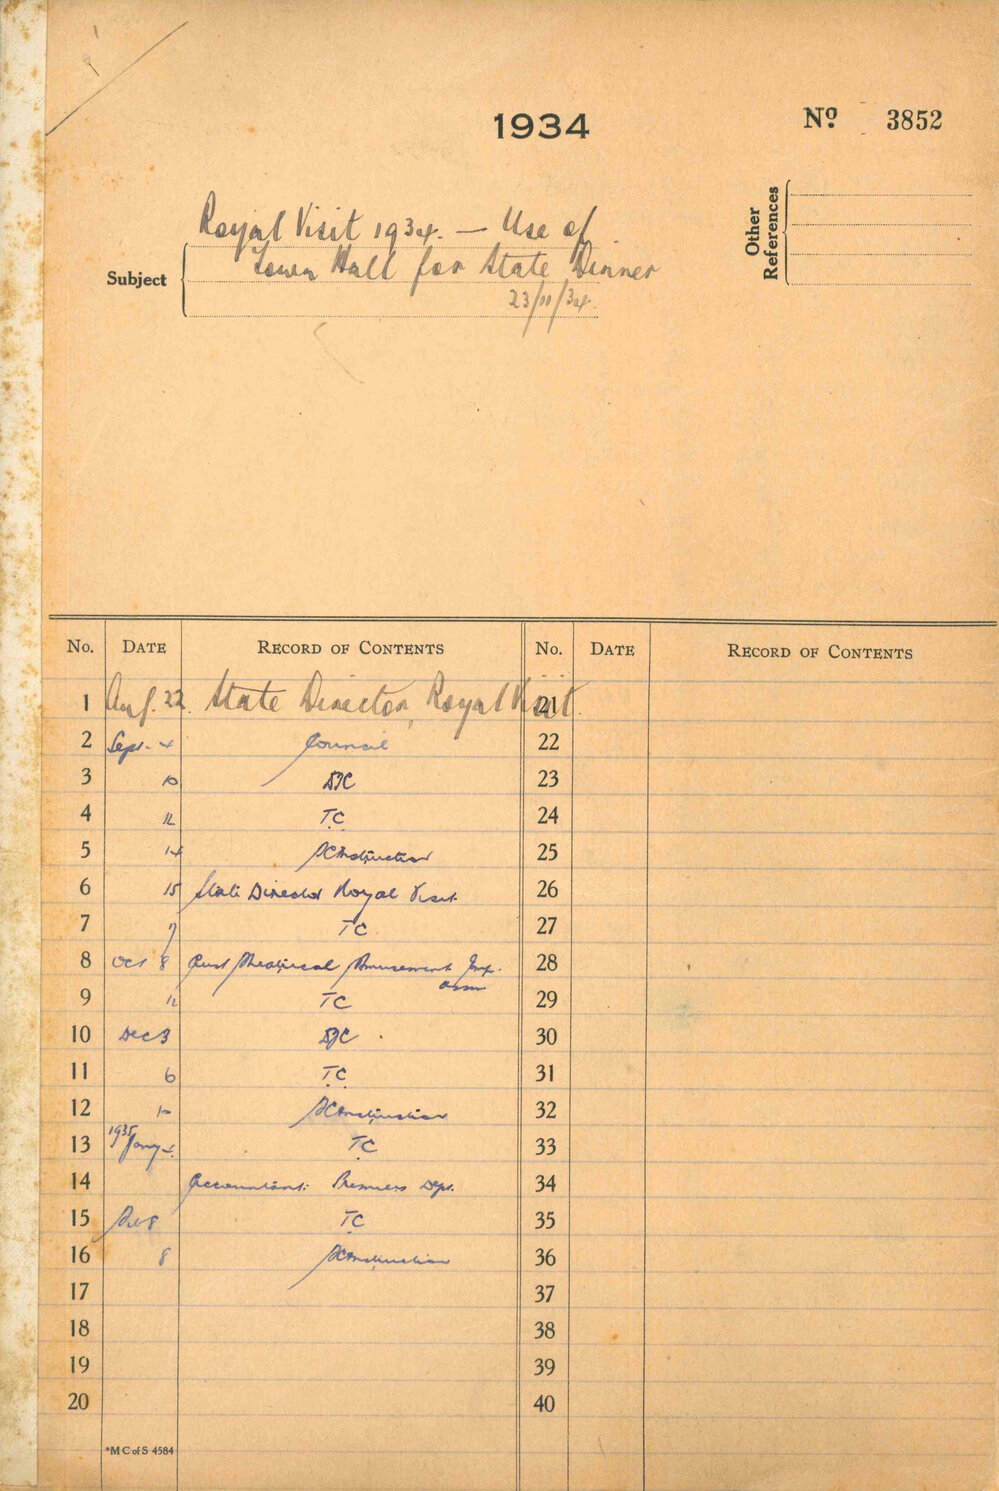 1934
No 3852
Other References
Subject
Royal Visit 1934. — Use of
Town Hall for State Dinner
23/11/34.
No. DATE RECORD OF CONTENTS No. DATE RECORD OF CONTENTS
1 Aug. 22. State Director, Royal Visit. 21
2 Sept. 4 Council 22
3 10 23
4 12 T.C. 24
5 14 25
6 15 State Director Royal Visit. 26
7 TC 27
8 Oct 8 Theatrical Amusement 28
9 12 TC 29
10 Dec 3 30
11 6 T.C. 31
12 10 32
13 1935 Jany TC 33
14 Accountant: Premiers Dept. 34
15 8 TC 35
16 8 36
17 37
18 38
19 39
20 40
*M C of S 4584